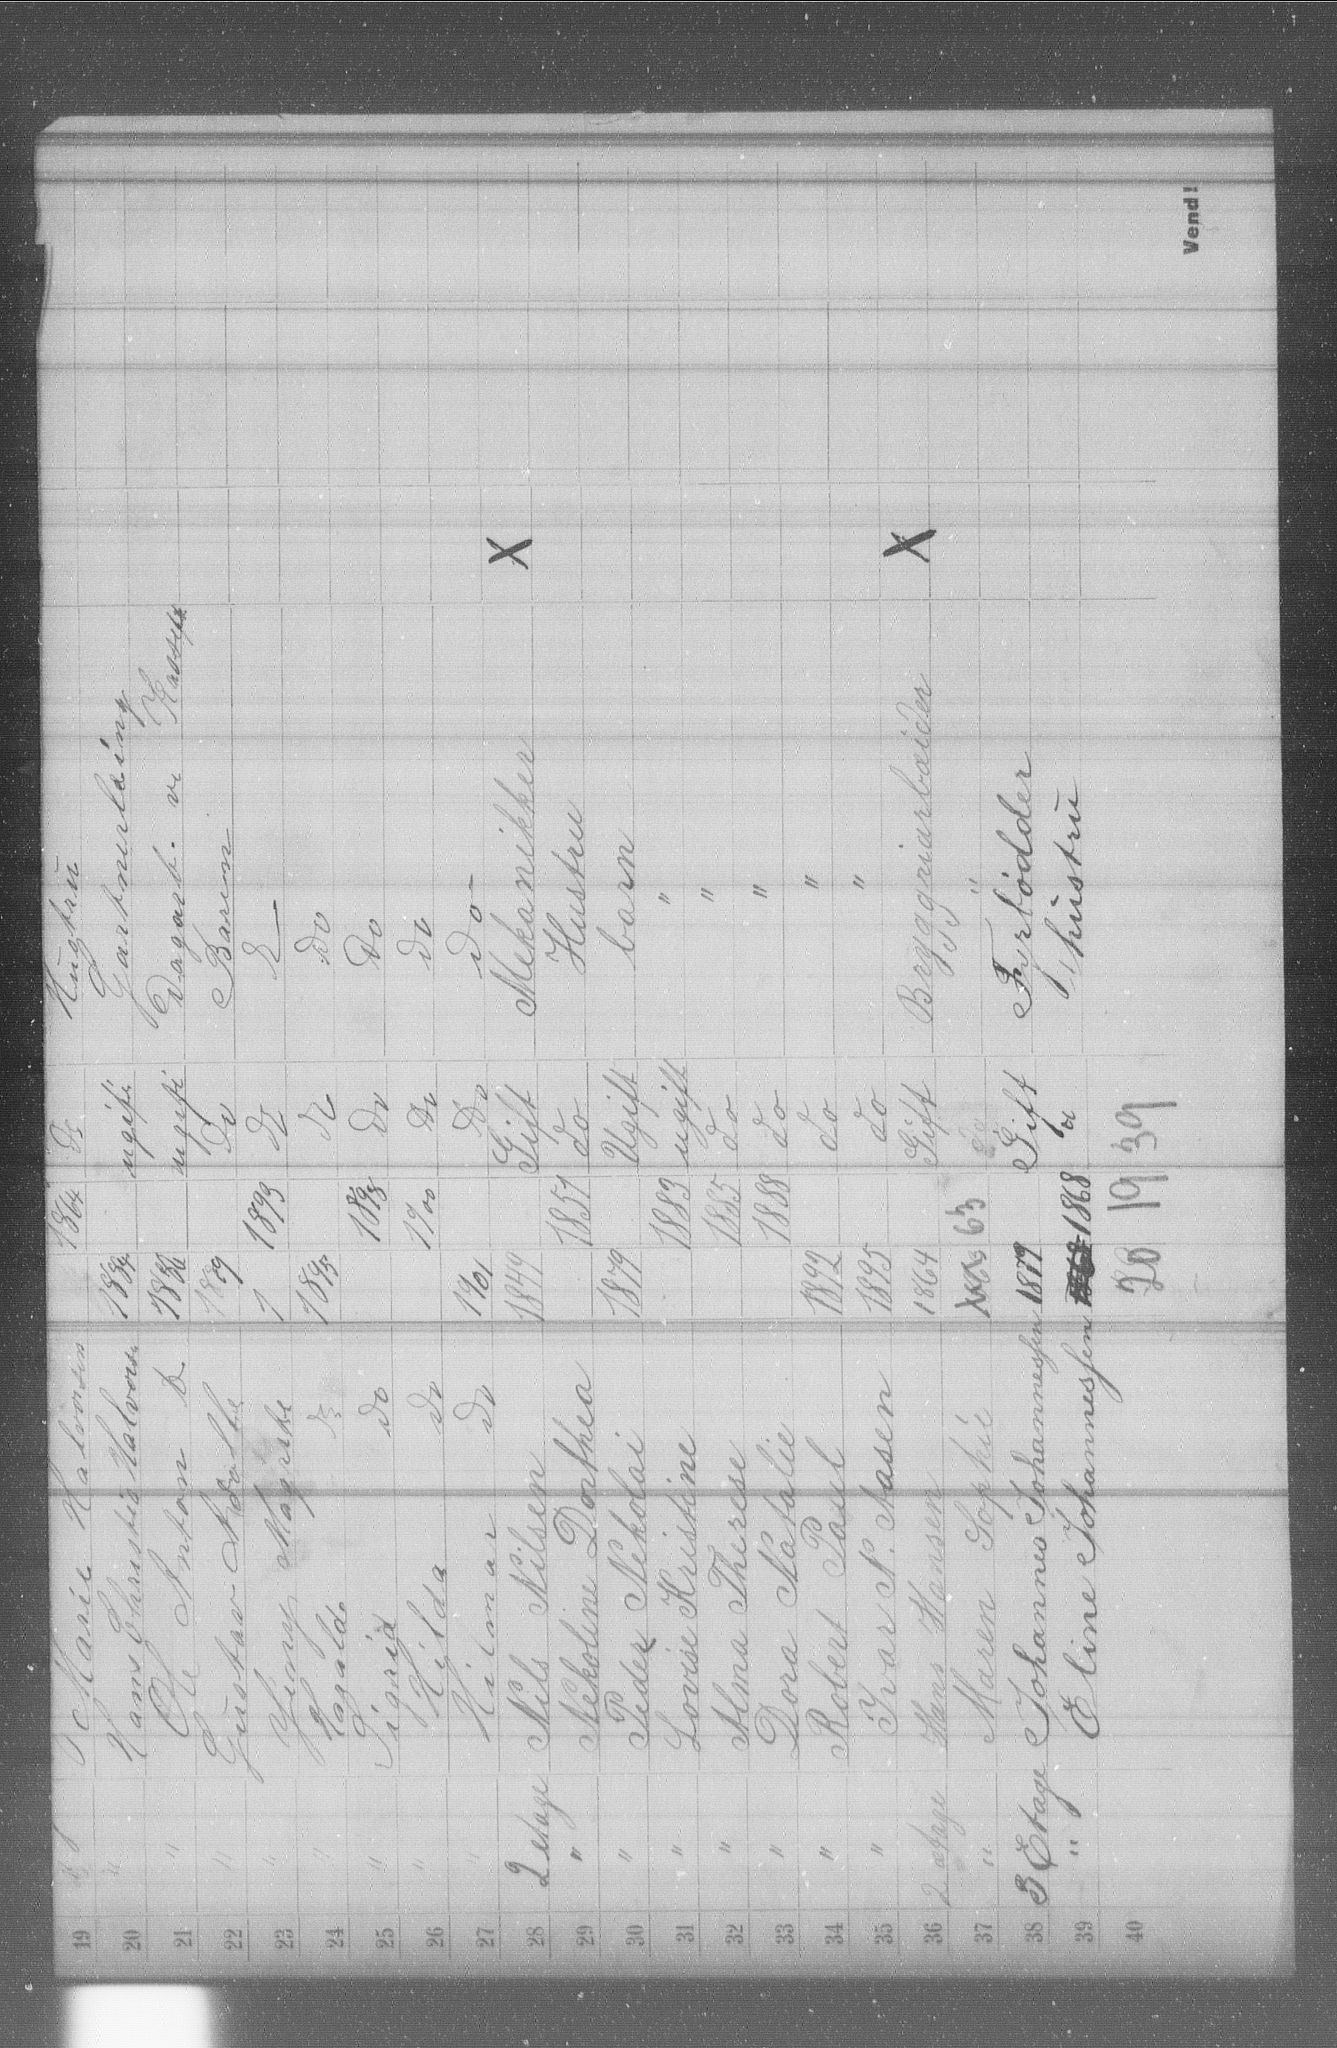 19 Marie Halvorsen 1864 Do Hustru
20 " Hans Christia Halvorsen ugift Gartnerlæing
21 " Ole Anton Do ugift Dagarb. v.
22 " Gustav Adolf Do Baren
23 " 1893 Do D —
24 " Do 1895 Do Do
25 " Sigrid Do 1898 Do Do
26 " Hilda Do 1900 Do Do
27 " Hilmar Do 1901 Do Do —
28 2 etage Nils Nilsen 1849 Gift Mekanikker X
29 " Nekoline Dorthea 1851 do Hustru
30 " Peder Nekolai 1879 Ugift barn
31 " Lovise Kristine 1883 ugift "
32 " Alma Therese 1885 do "
33 " Dora Natalie 1888 do "
34 " Robert Paul 1892 do "
35 " Ivar N. Aasen 1895 do "
36 2 etage Hans Hansen 1864 Gift Bryggriarbeider X
37 " Maren Sophie 63 do "
38 3 Etage Johannes Johannessen 1879 Gift Fyrbödder
39 " Eline Johannessen 1868 " " hustru
40 20 19 39
Vend!